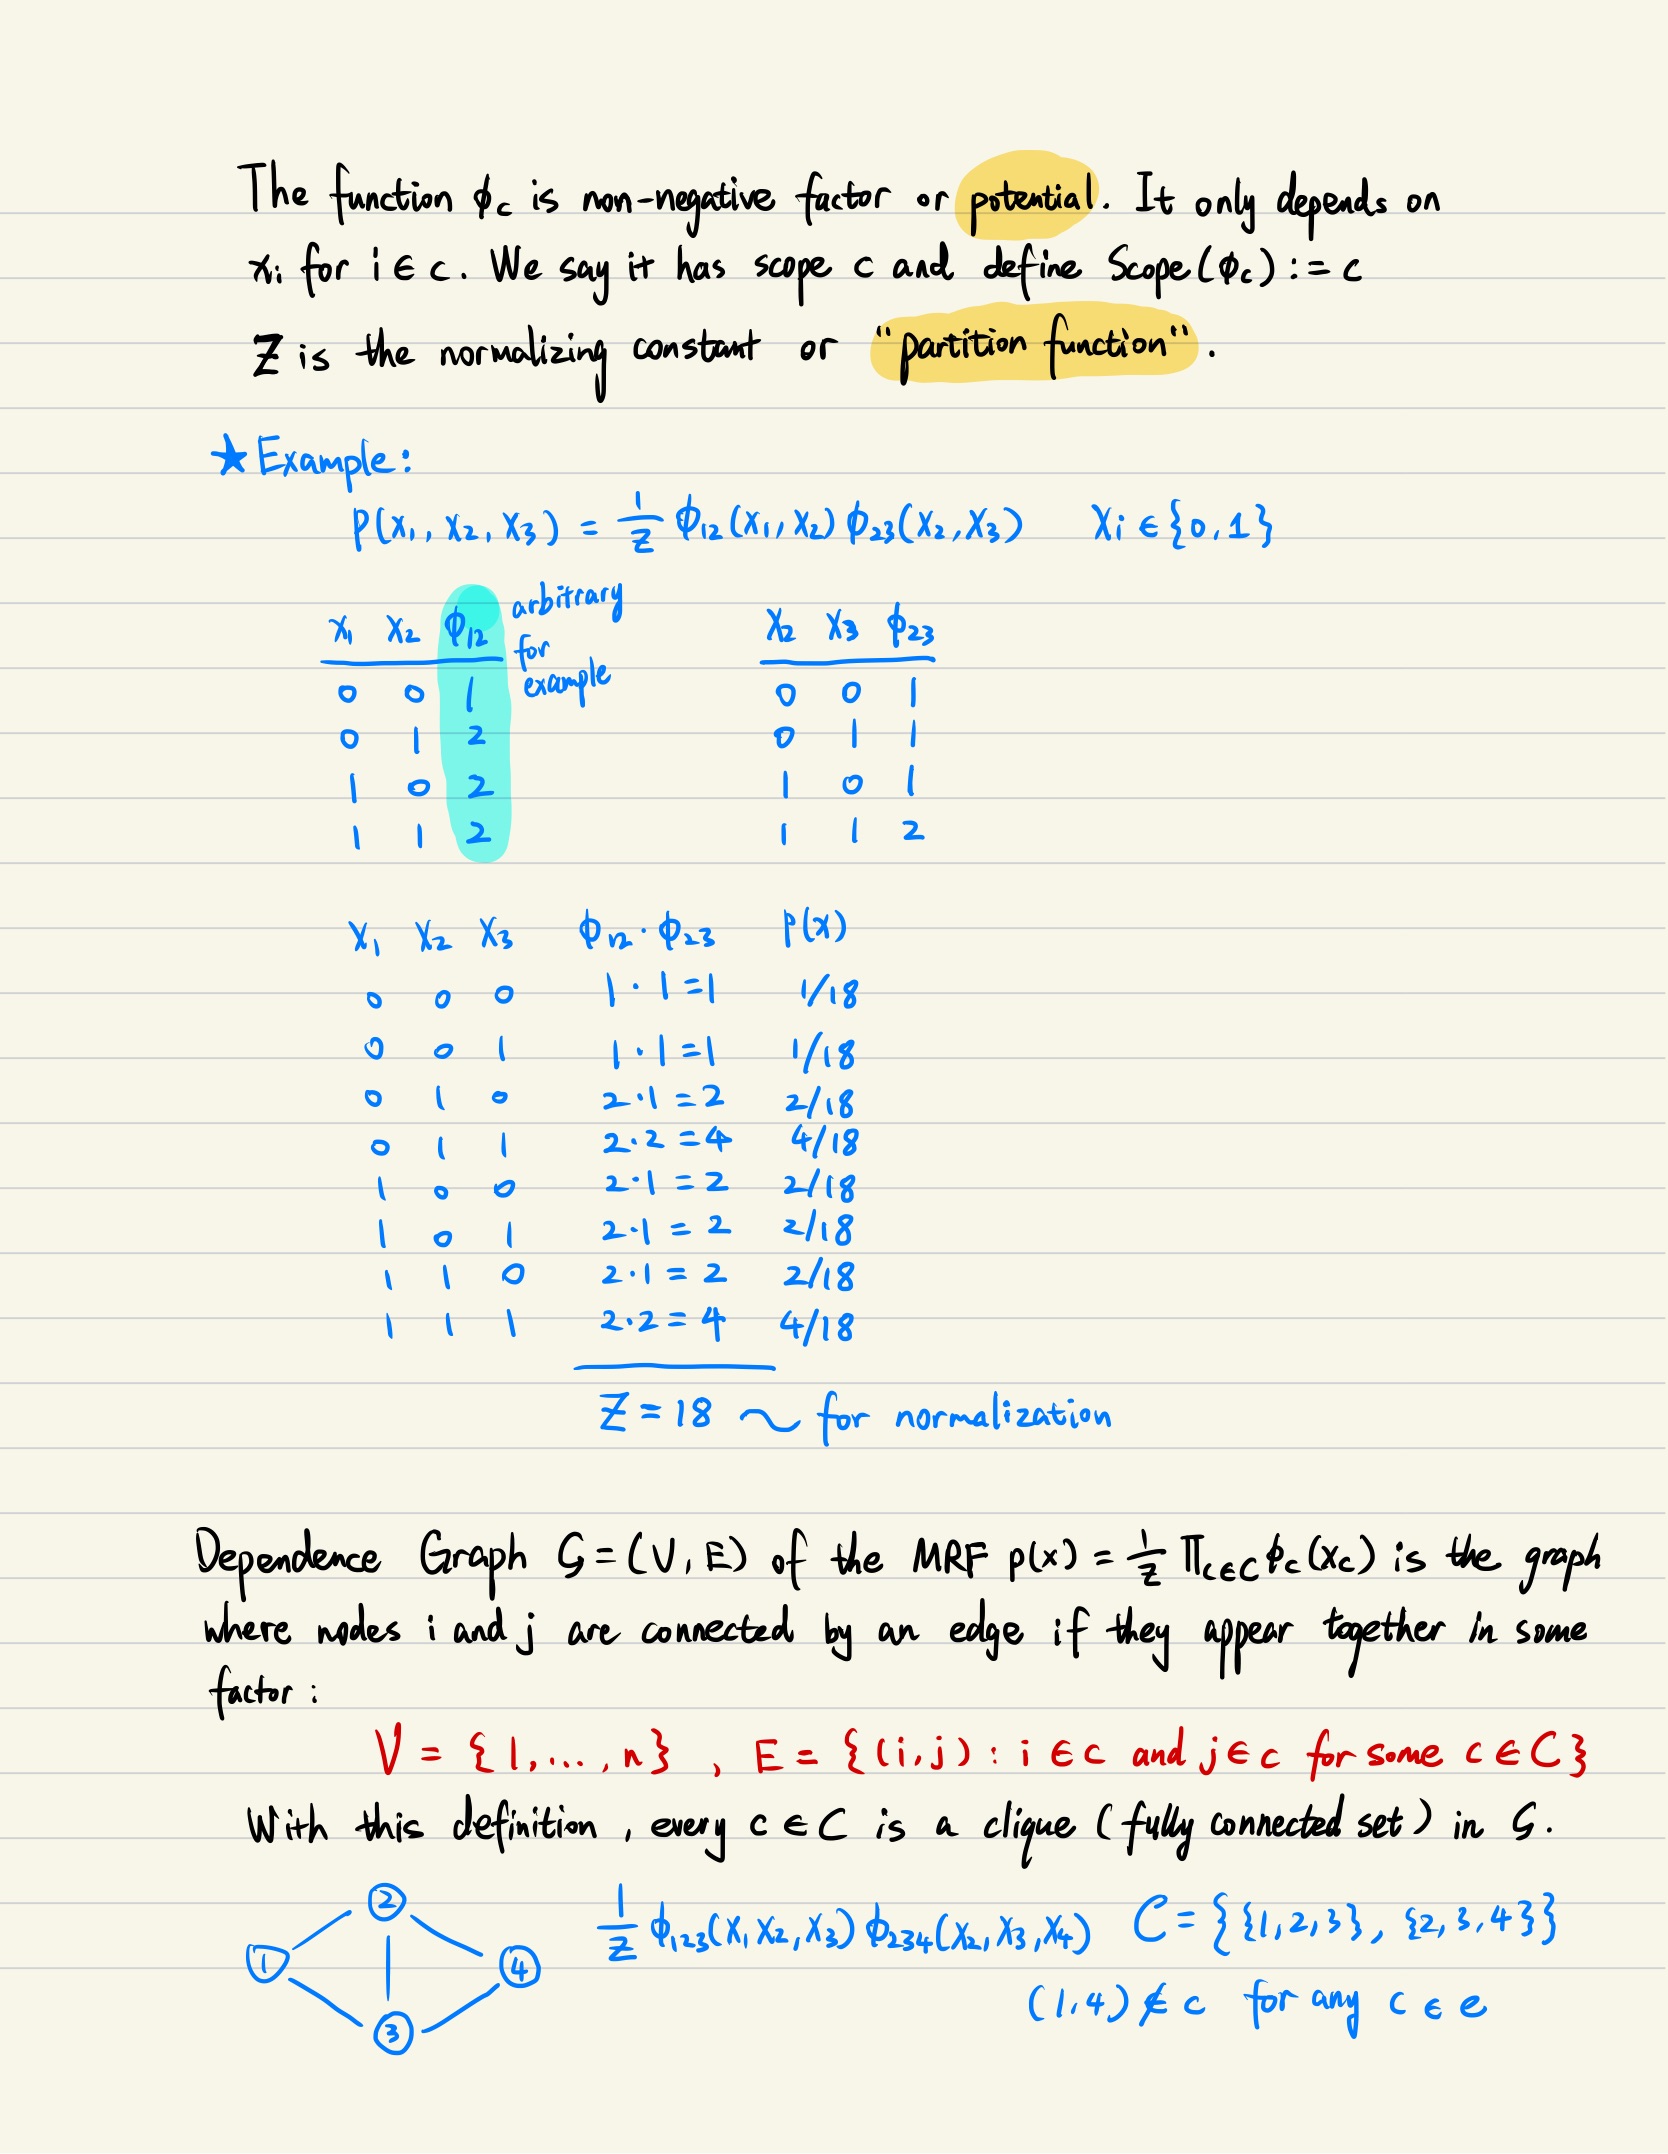 The function ϕc is non-negative factor or potential. It only depends on
xi for i ∈ c. We say it has scope c and define Scope(ϕc) := c
Z is the normalizing constant or "partition function".
★ Example:
P(x1, x2, x3) = 1/Z ϕ12(x1, x2) ϕ23(x2, x3) Xi ∈ {0, 1}
arbitrary
for
example
x1 x2 ϕ12
0 0 1
0 1 2
1 0 2
1 1 2
x2 x3 ϕ23
0 0 1
0 1 1
1 0 1
1 1 2
x1 x2 x3 ϕ12 · ϕ23 P(x)
0 0 0 1 · 1 = 1 1/18
0 0 1 1 · 1 = 1 1/18
0 1 0 2 · 1 = 2 2/18
0 1 1 2 · 2 = 4 4/18
1 0 0 2 · 1 = 2 2/18
1 0 1 2 · 1 = 2 2/18
1 1 0 2 · 1 = 2 2/18
1 1 1 2 · 2 = 4 4/18
Z = 18 ~ for normalization
Dependence Graph G = (V, E) of the MRF p(x) = 1/Z Πc∈C ϕc(xc) is the graph
where nodes i and j are connected by an edge if they appear together in some
factor :
V = {1, ..., n} , E = {(i, j) : i ∈ c and j ∈ c for some c ∈ C}
With this definition, every c ∈ C is a clique (fully connected set) in G.
1 2 3 4
1/Z ϕ123(x1 x2, x3) ϕ234(x2, x3, x4) C = {{1, 2, 3}, {2, 3, 4}}
(1, 4) ∉ c for any c ∈ e